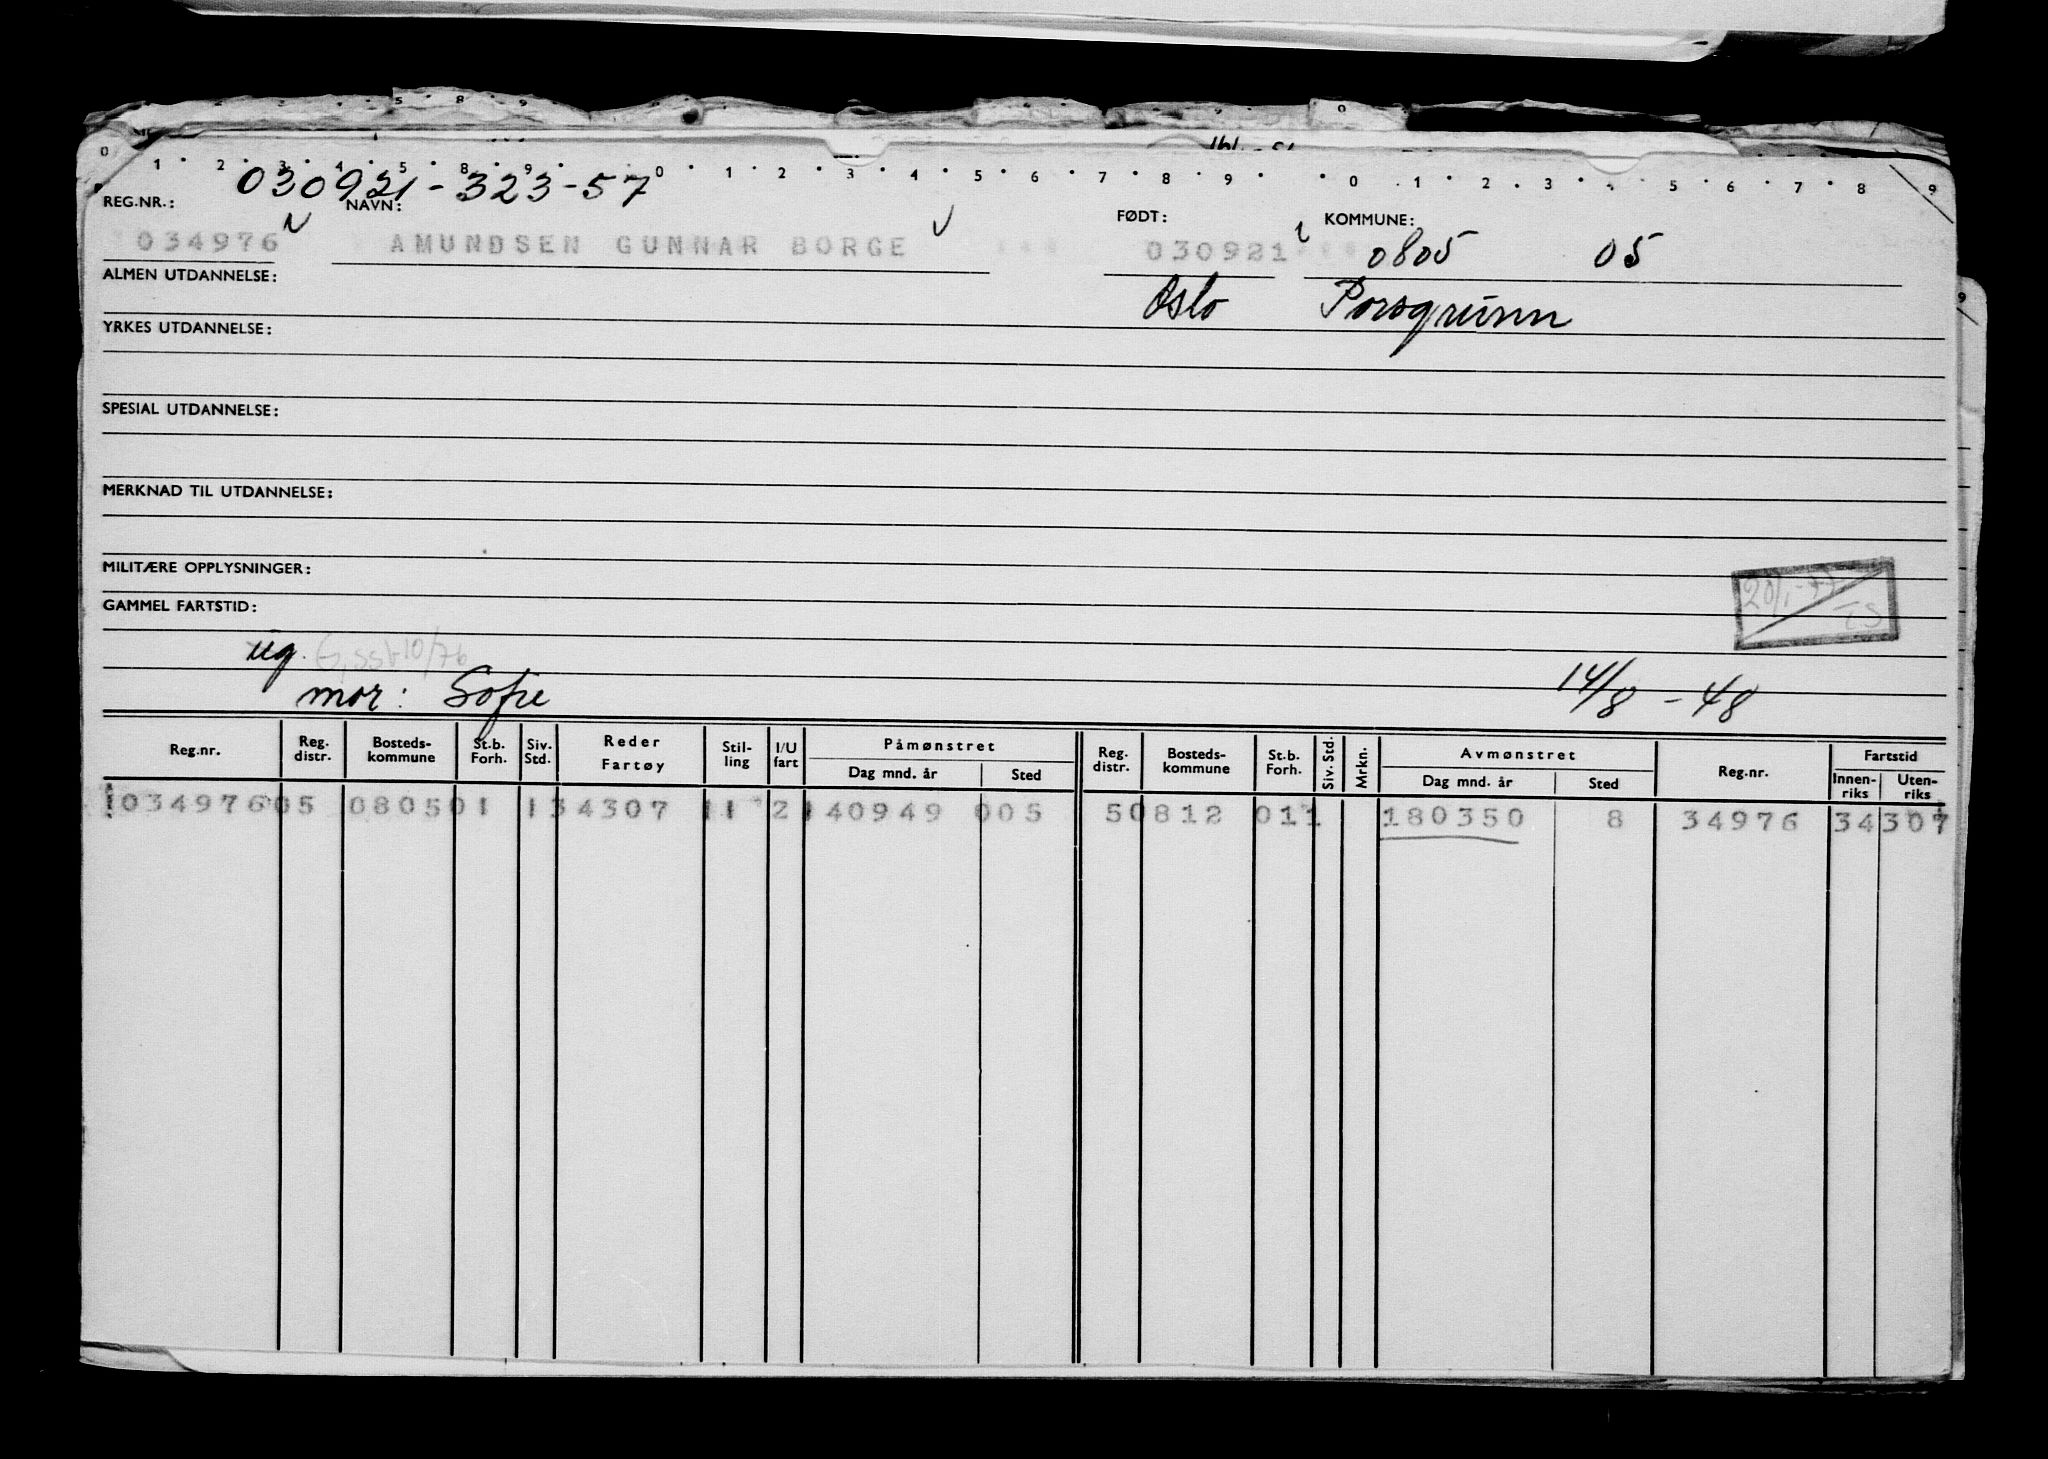 0 1 2 3 4 5 8 9 0 1 2 3 4 5 6 7 8 9 0 1 2 3 4 5 6 7 8 9
030921-323-57
REG.NR.: NAVN: FØDT: KOMMUNE:
034976 AMUNDSEN GUNNAR BORGE 030921 0805 05
ALMEN UTDANNELSE: Oslo Porsgrunn
YRKES UTDANNELSE:
SPESIAL UTDANNELSE:
MERKNAD TIL UTDANNELSE:
MILITÆRE OPPLYSNINGER:
GAMMEL FARTSTID:
ug. 10/76
mor: Sofie 14/8-48
Reg.nr. Reg. distr. Bosteds-kommune St.b. Forh. Siv. Std. Reder Fartøy Stil-ling I/U fart Påmønstret Dag mnd. år Sted Reg. distr. Bosteds-kommune St.b. Forh. Siv. Std. Mrkn. Avmønstret Dag mnd. år Sted Reg.nr. Fartstid Innen-riks Uten-riks
103497605 080501 134307 11 2140949 005 50812 011 180350 8 34976 34307